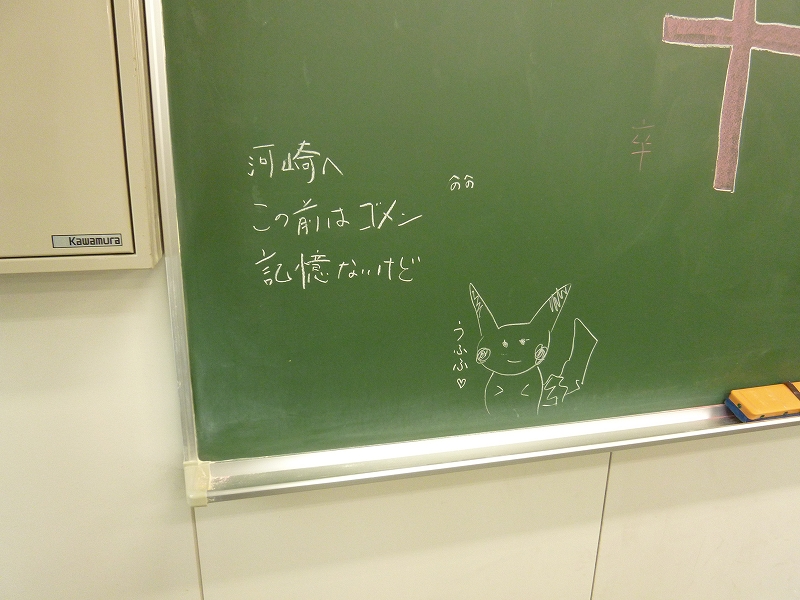 河崎へ
この前はゴメン
記憶ないけど
うふふ♡
卒
Kawamura